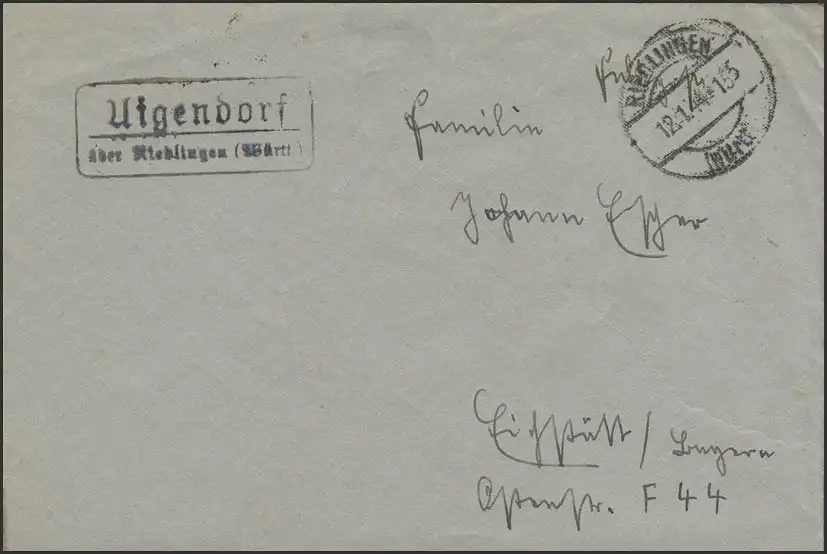 Uigendorf
über Riedlingen (Württ)
RIEDLINGEN
12.1.44 * 13
(WÜRTT)
Familie
Johann Escher
Eichstätt / Bayern
Ostenstr. F 44